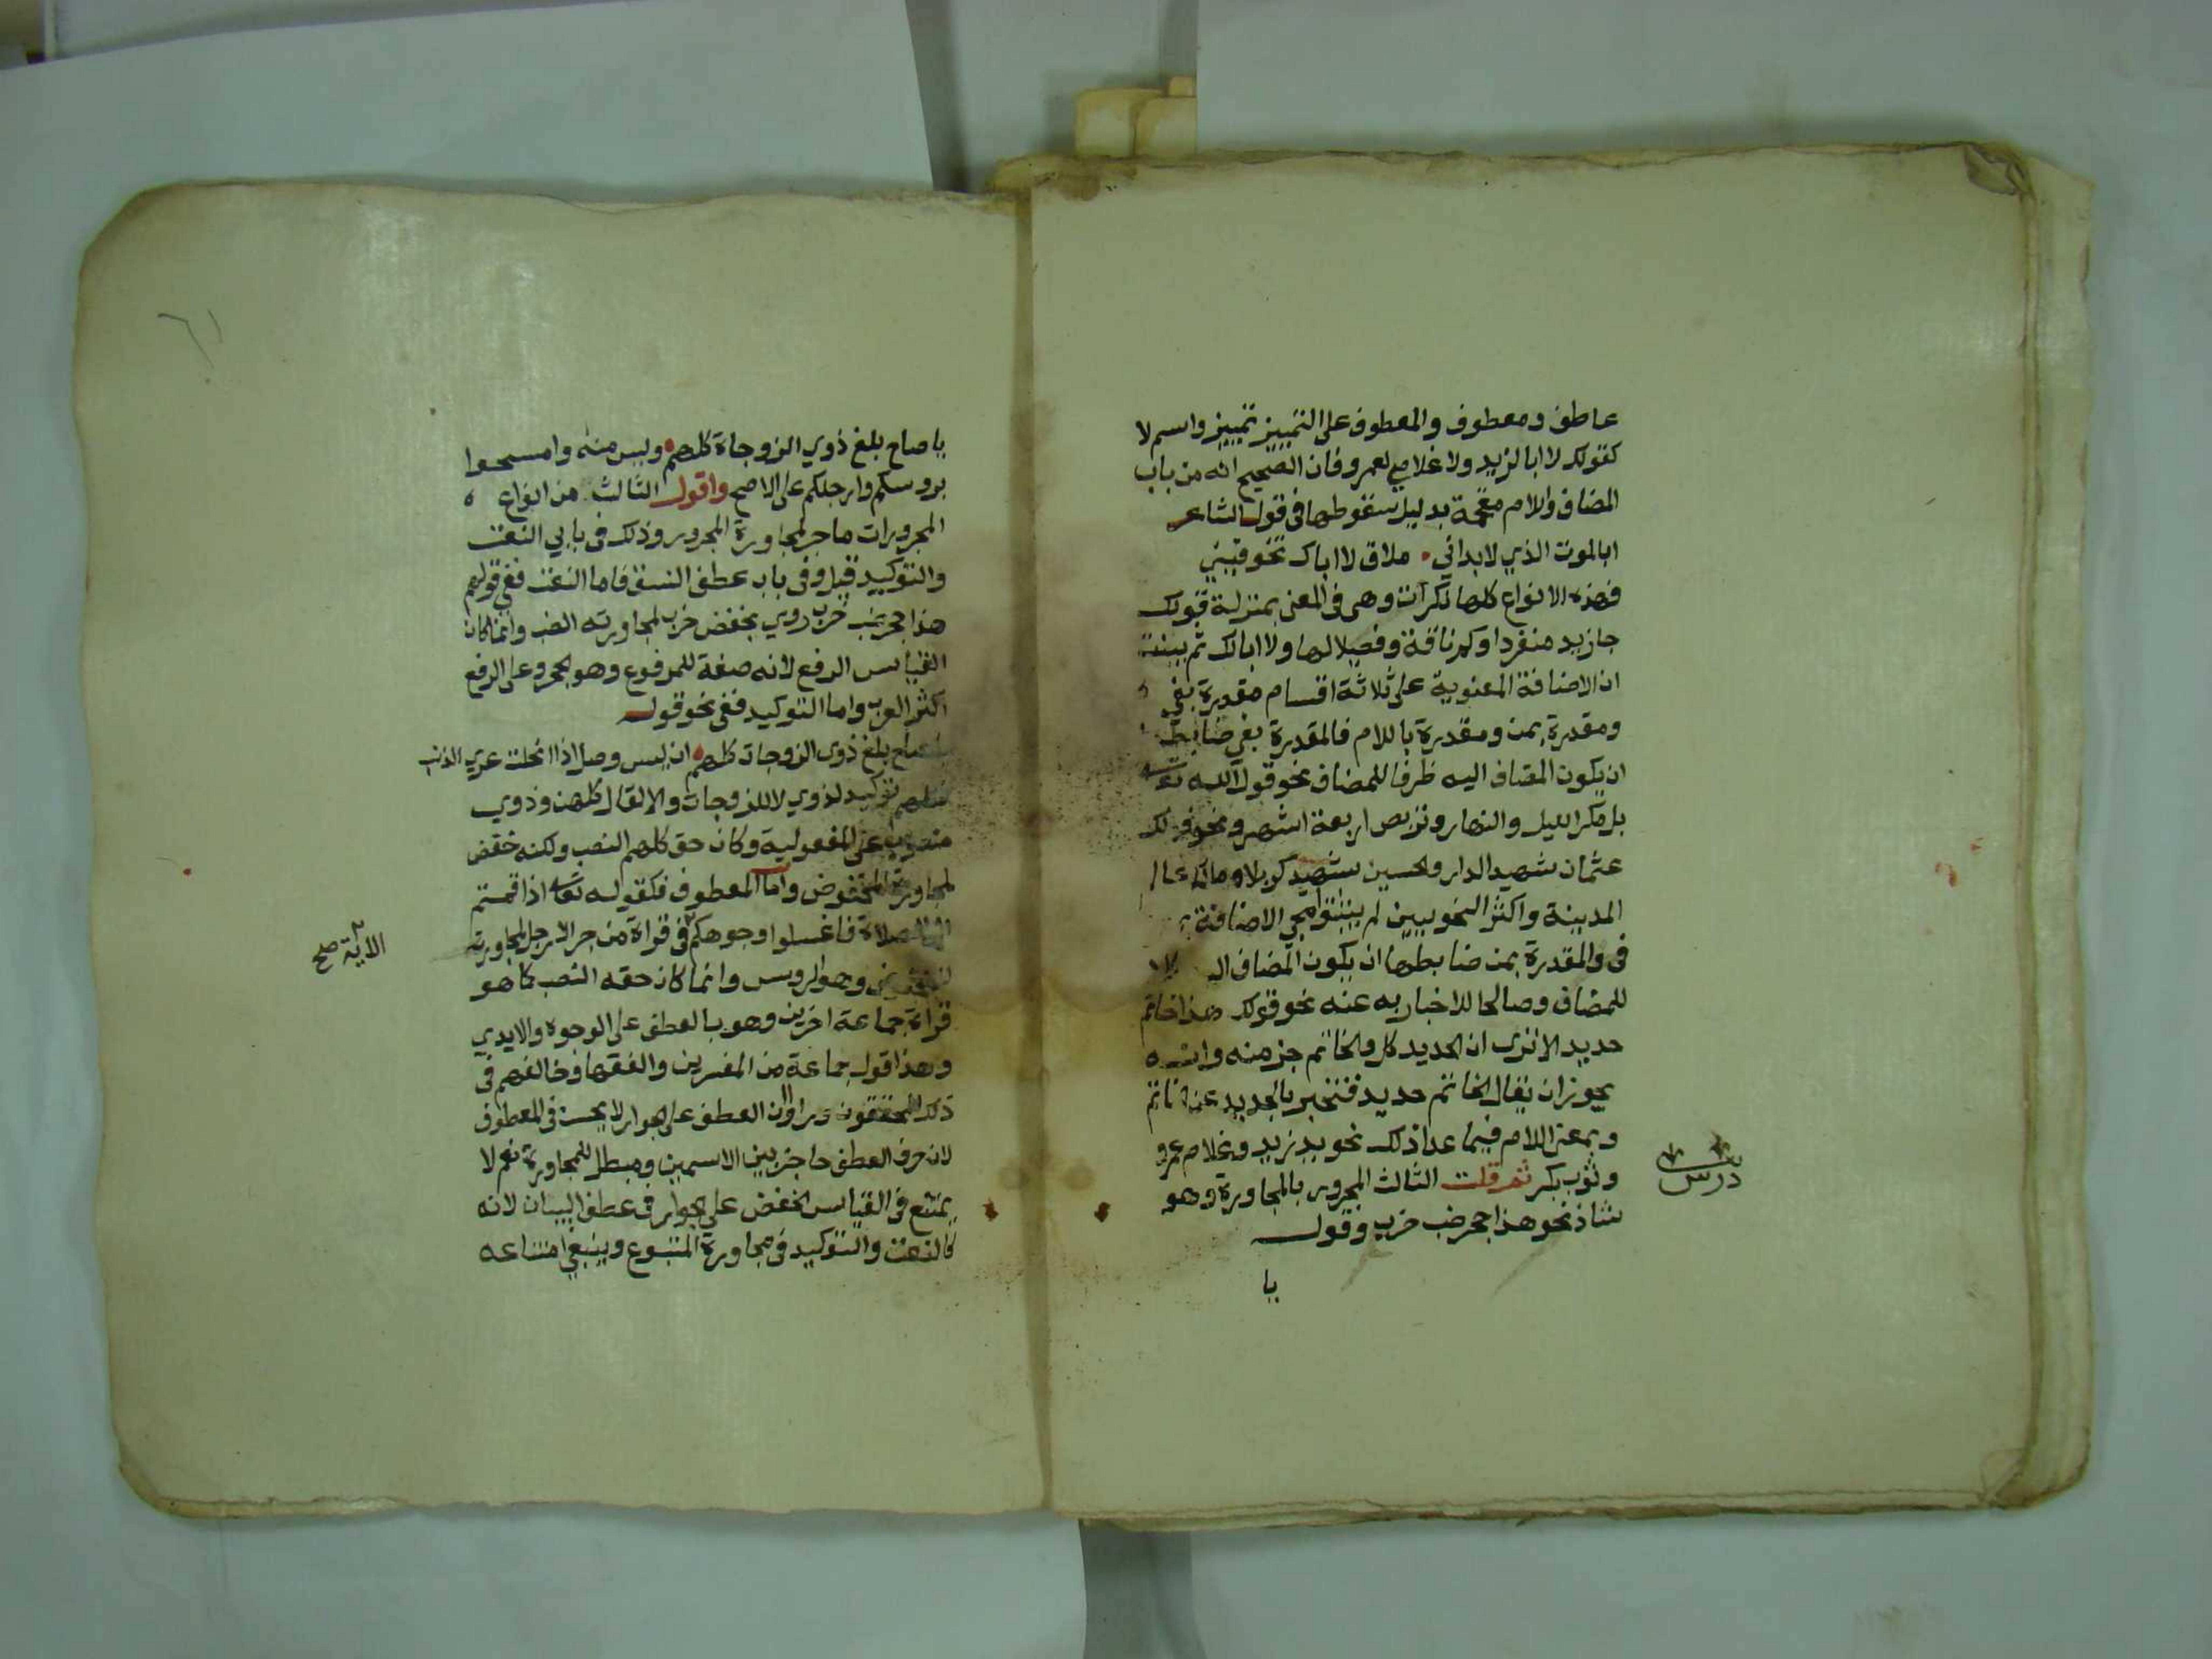 عاطف ومعطوف والمعطوف على التمييز تمييز واسم لا
كقولك لا ابا لزيد ولا غلامي لعمرو فان الصحيح انه من باب
المضاف واللام مقحمة بدليل سقوطها فى قول الشاعر
ابالموت الذي لا بد اني ملاق لا اباك تخوفيني
فهذه الانواع كلها نكرات وهى فى المعنى بمنزلة قولك
جا زيد منفردا وكم ناقة وفصيلا لها ولا ابا لك ثم بينت
ان الاضافة المعنوية على ثلاثة اقسام مقدرة بفي
ومقدرة بمن ومقدرة باللام فالمقدرة بفي ضابطها
ان يكون المضاف اليه ظرفا للمضاف نحو قول الله تعالى
بل مكر الليل والنهار وتربص اربعة اشهر ونحو قولك
عثمان شهيد الدار والحسين شهيد كربلا ومالك عالم
المدينة واكثر النحويين لم يثبتوا مجي الاضافة
فى والمقدرة بمن ضابطها ان يكون المضاف
للمضاف وصالحا للاخبار به عنه نحو قولك هذا خاتم
حديد الا ترى ان الحديد كل والخاتم جز منه وانه
يجوز ان يقال الخاتم حديد فتخبر بالحديد عن الخاتم
وبمعنى اللام فيما عدا ذلك نحو يد زيد وغلام عمرو
وثوب بكر ثم قلت الثالث المجرور بالمجاورة وهو
شاذ نحو هذا جحر ضب خرب وقوله
يا
درس
٦١
يا صاح بلغ ذوي الزوجاة كلهم وليس منه وامسحوا
بروسكم وارجلكم على الاصح واقول الثالث من انواع
المجرورات ما جر لمجاورة المجرور وذلك فى بابي النعت
والتوكيد قيل وفى باب عطف النسق فاما النعت ففى قولهم
هذا جحر ضب خرب روي بخفض خرب لمجاورته الضب وانما كان
القياس الرفع لانه صفة للمرفوع وهو الجحر وعلى الرفع
اكثر العرب واما التوكيد ففى نحو قوله
يا صاح بلغ ذوى الزوجات كلهم ان ليس وصل اذا انحلت عري الذنب
فكلهم توكيد لذوي لا للزوجات والا لقال كلهن وذوي
منصوب على المفعولية وكان حق كلهم النصب ولكنه خفض
لمجاورة المخفوض واما المعطوف فكقوله تعالى اذا قمتم
الى الصلاة فاغسلوا وجوهكم فى قراة من جر الارجل لمجاورته
للمخفوض وهو الروس وانما كان حقه النصب كما هو
قراة جماعة اخرين وهو بالعطف على الوجوه والايدي
وهذا قول جماعة من المفسرين والفقها وخالفهم فى
ذلك المحققون وراوا ان العطف على الجوار لا يحسن فى المعطوف
لان حرف العطف حاجز بين الاسمين ومبطل للمجاورة نعم لا
يمتنع فى القياس الخفض على الجوار فى عطف البيان لانه
كالنعت والتوكيد فى مجاورة المتبوع وينبغي امتناعه
الاية صح